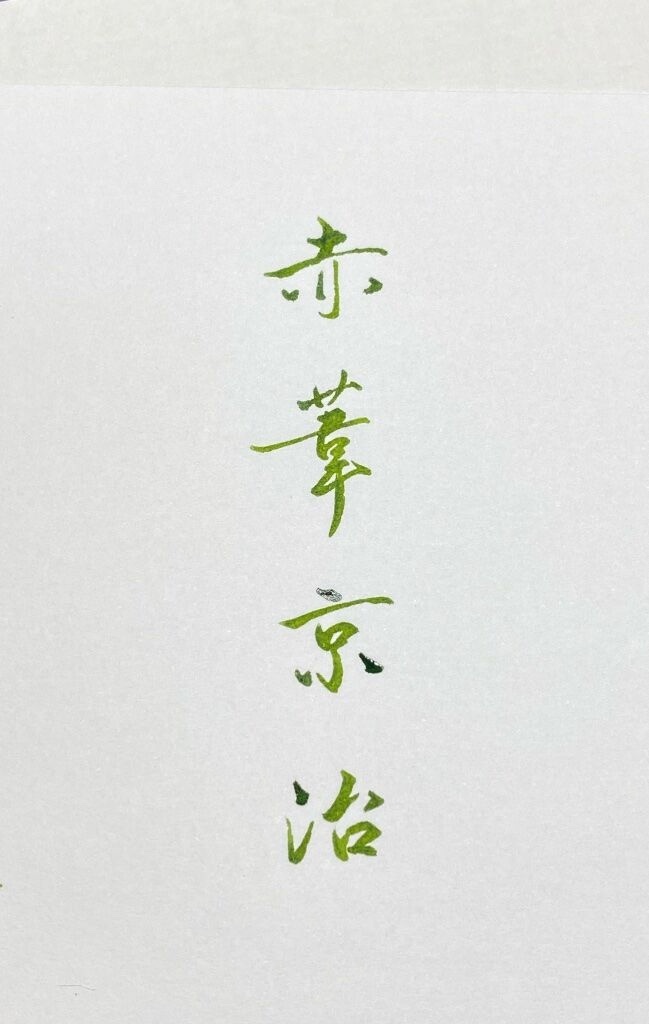 赤葦京治